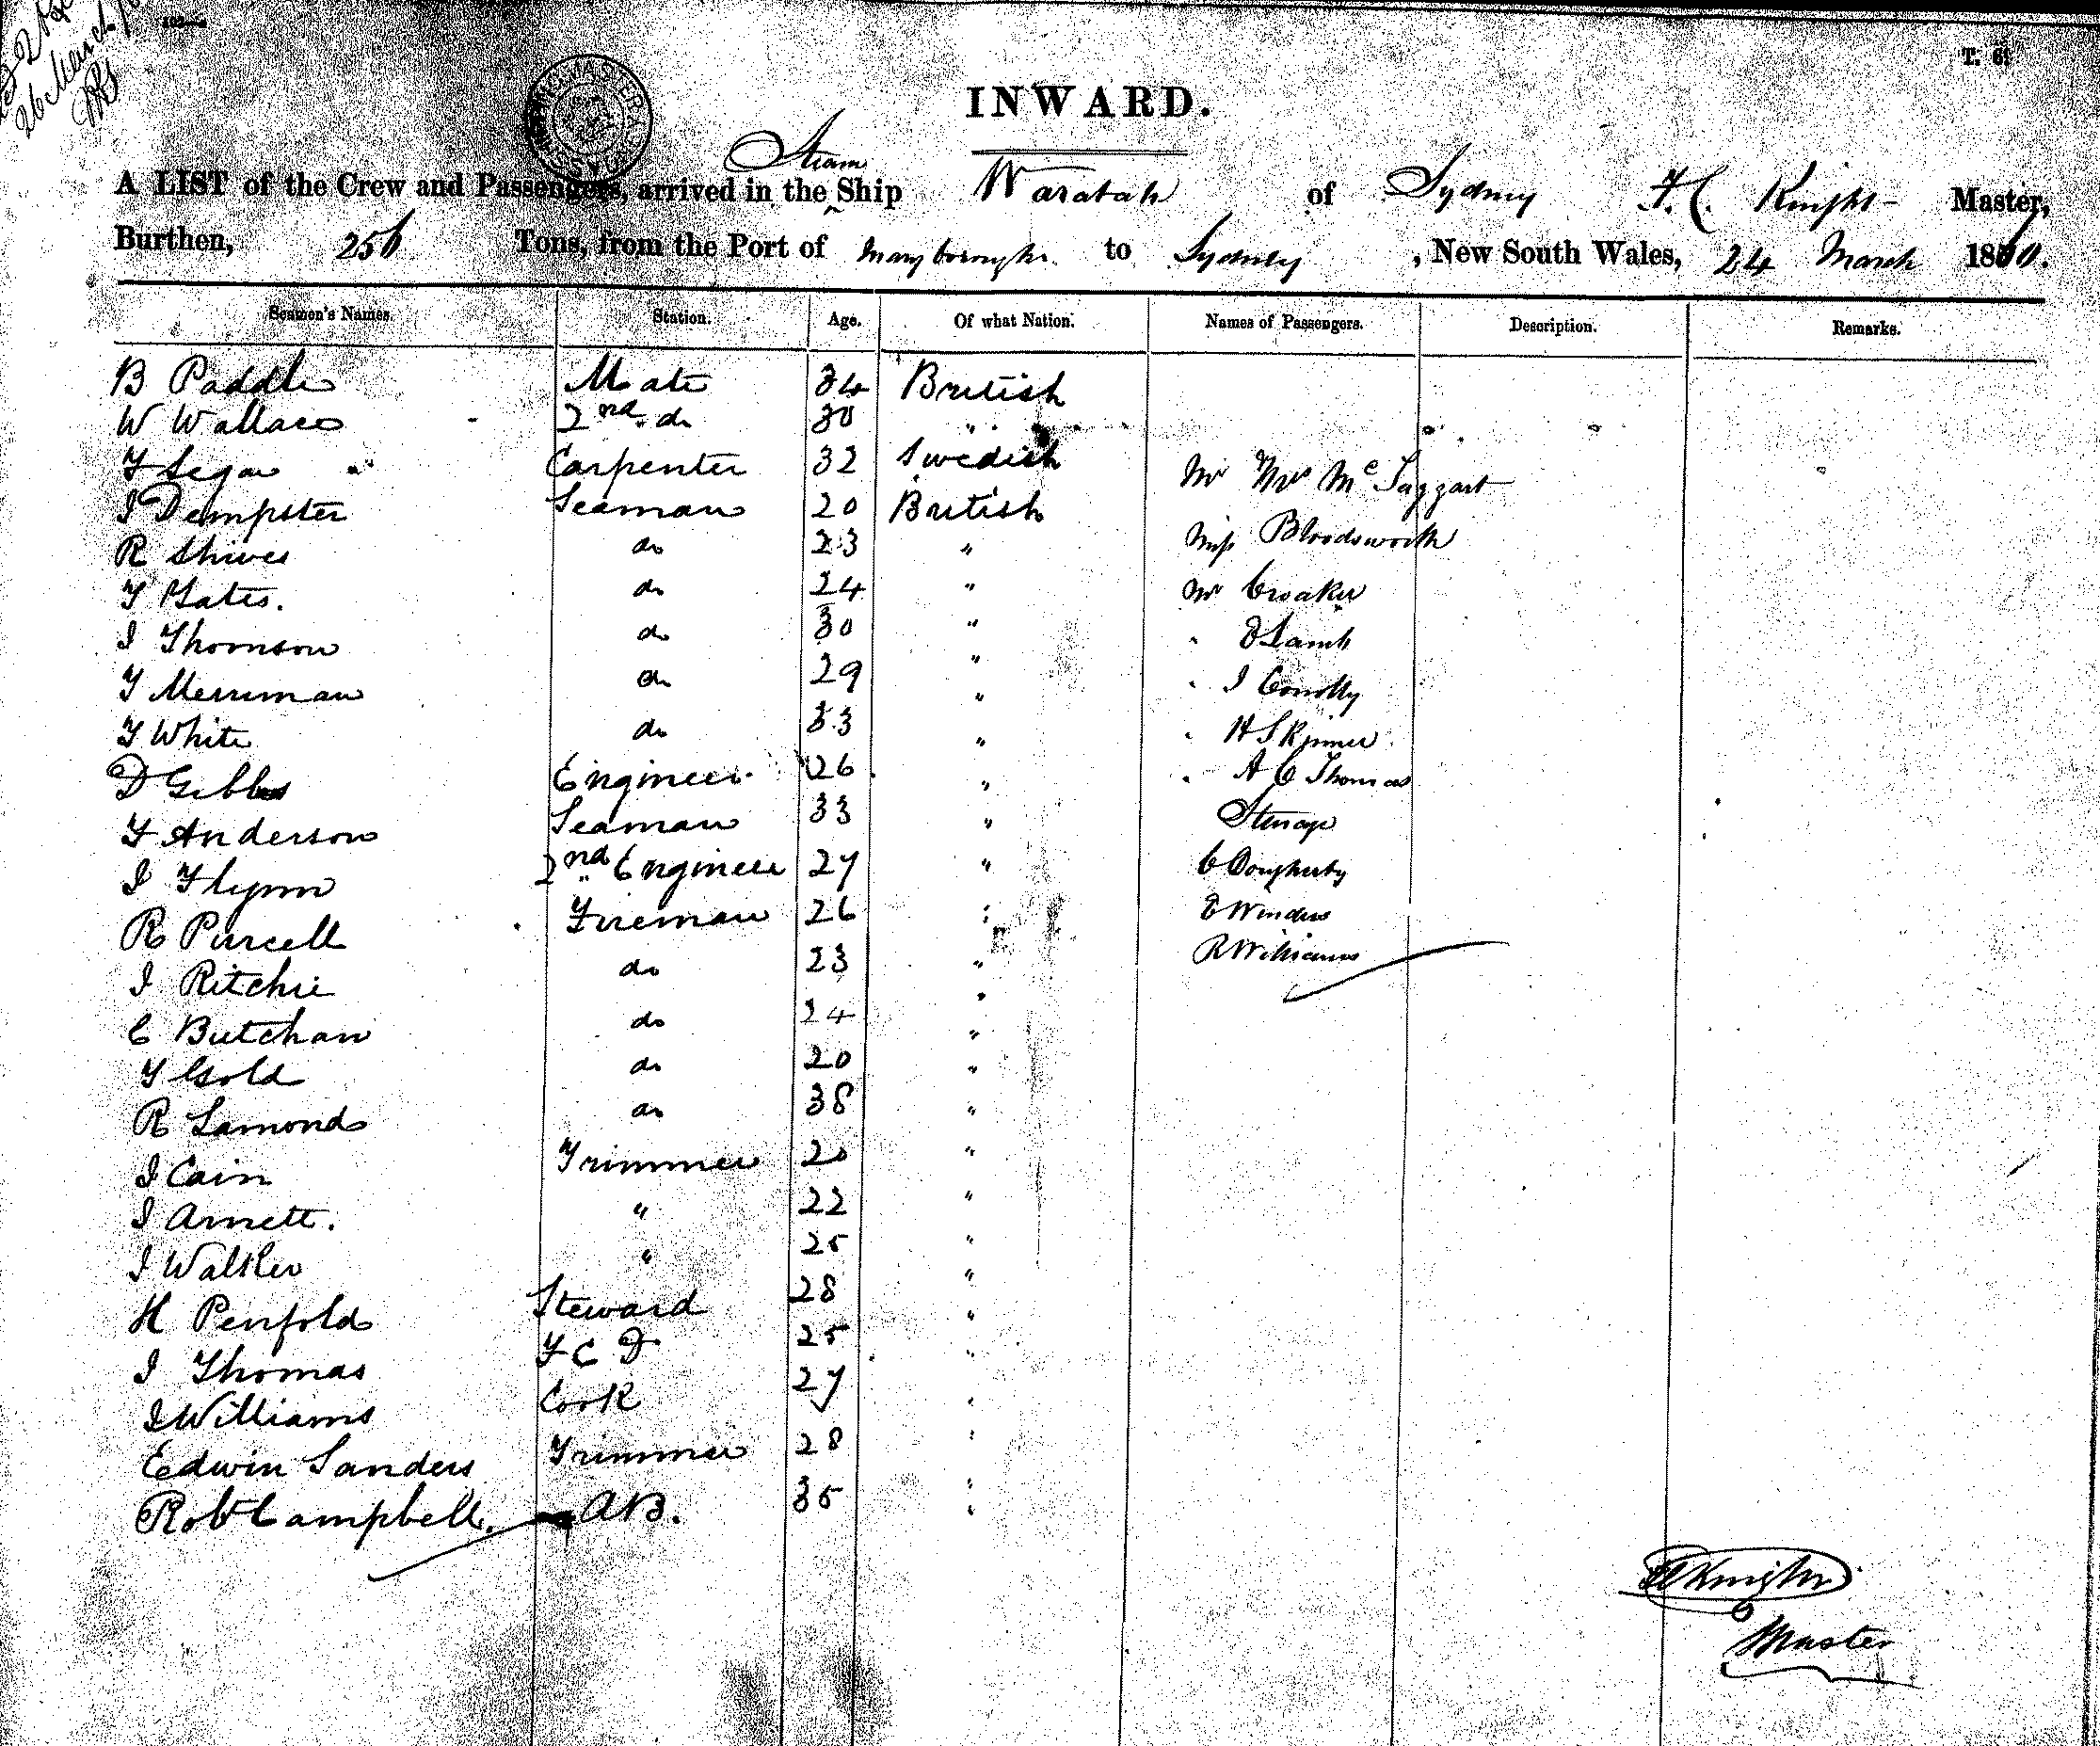 26 March
T. 6
INWARD.
Steam
A LIST of the Crew and Passengers, arrived in the Ship Waratah of Sydney F. C. Knight Master,
Burthen, 256 Tons, from the Port of Maryborough to Sydney, New South Wales, 24 March 1860.
Seamen's Names. Station. Age. Of what Nation. Names of Passengers. Description. Remarks.
B Paddle Mate 34 British
W Wallace 2nd do 30 "
Carpenter 32 Swedish Mr Mrs McTaggart
J Dempster Seaman 20 British
R Shives do 23 " Miss Bloodsworth
T Yates. do 24 " Mr Croaker
J Thomson do 30 " " E Lamb
T Merriman do 29 " " J Conolly
T White do 33 " " H Skinner
D Gibbs Engineer 26 " " A C Thomas
F Anderson Seaman 33 " Steerage
J Flynn 2nd Engineer 27 " C Dougherty
R Purcell Fireman 26 " E Winders
J Ritchie do 23 " R Williams
C Butchan do 24 "
T Gold do 20 "
R Lamond do 38 "
J Cain Trimmer 20 "
J Arnett. " 22 "
J Walker " 25 "
H Penfold Steward 28 "
J Thomas F C D 25 "
J Williams Cook 27 "
Edwin Sanders Trimmer 28 "
Robt Campbell. AB. 35 "
F C Knight
Master